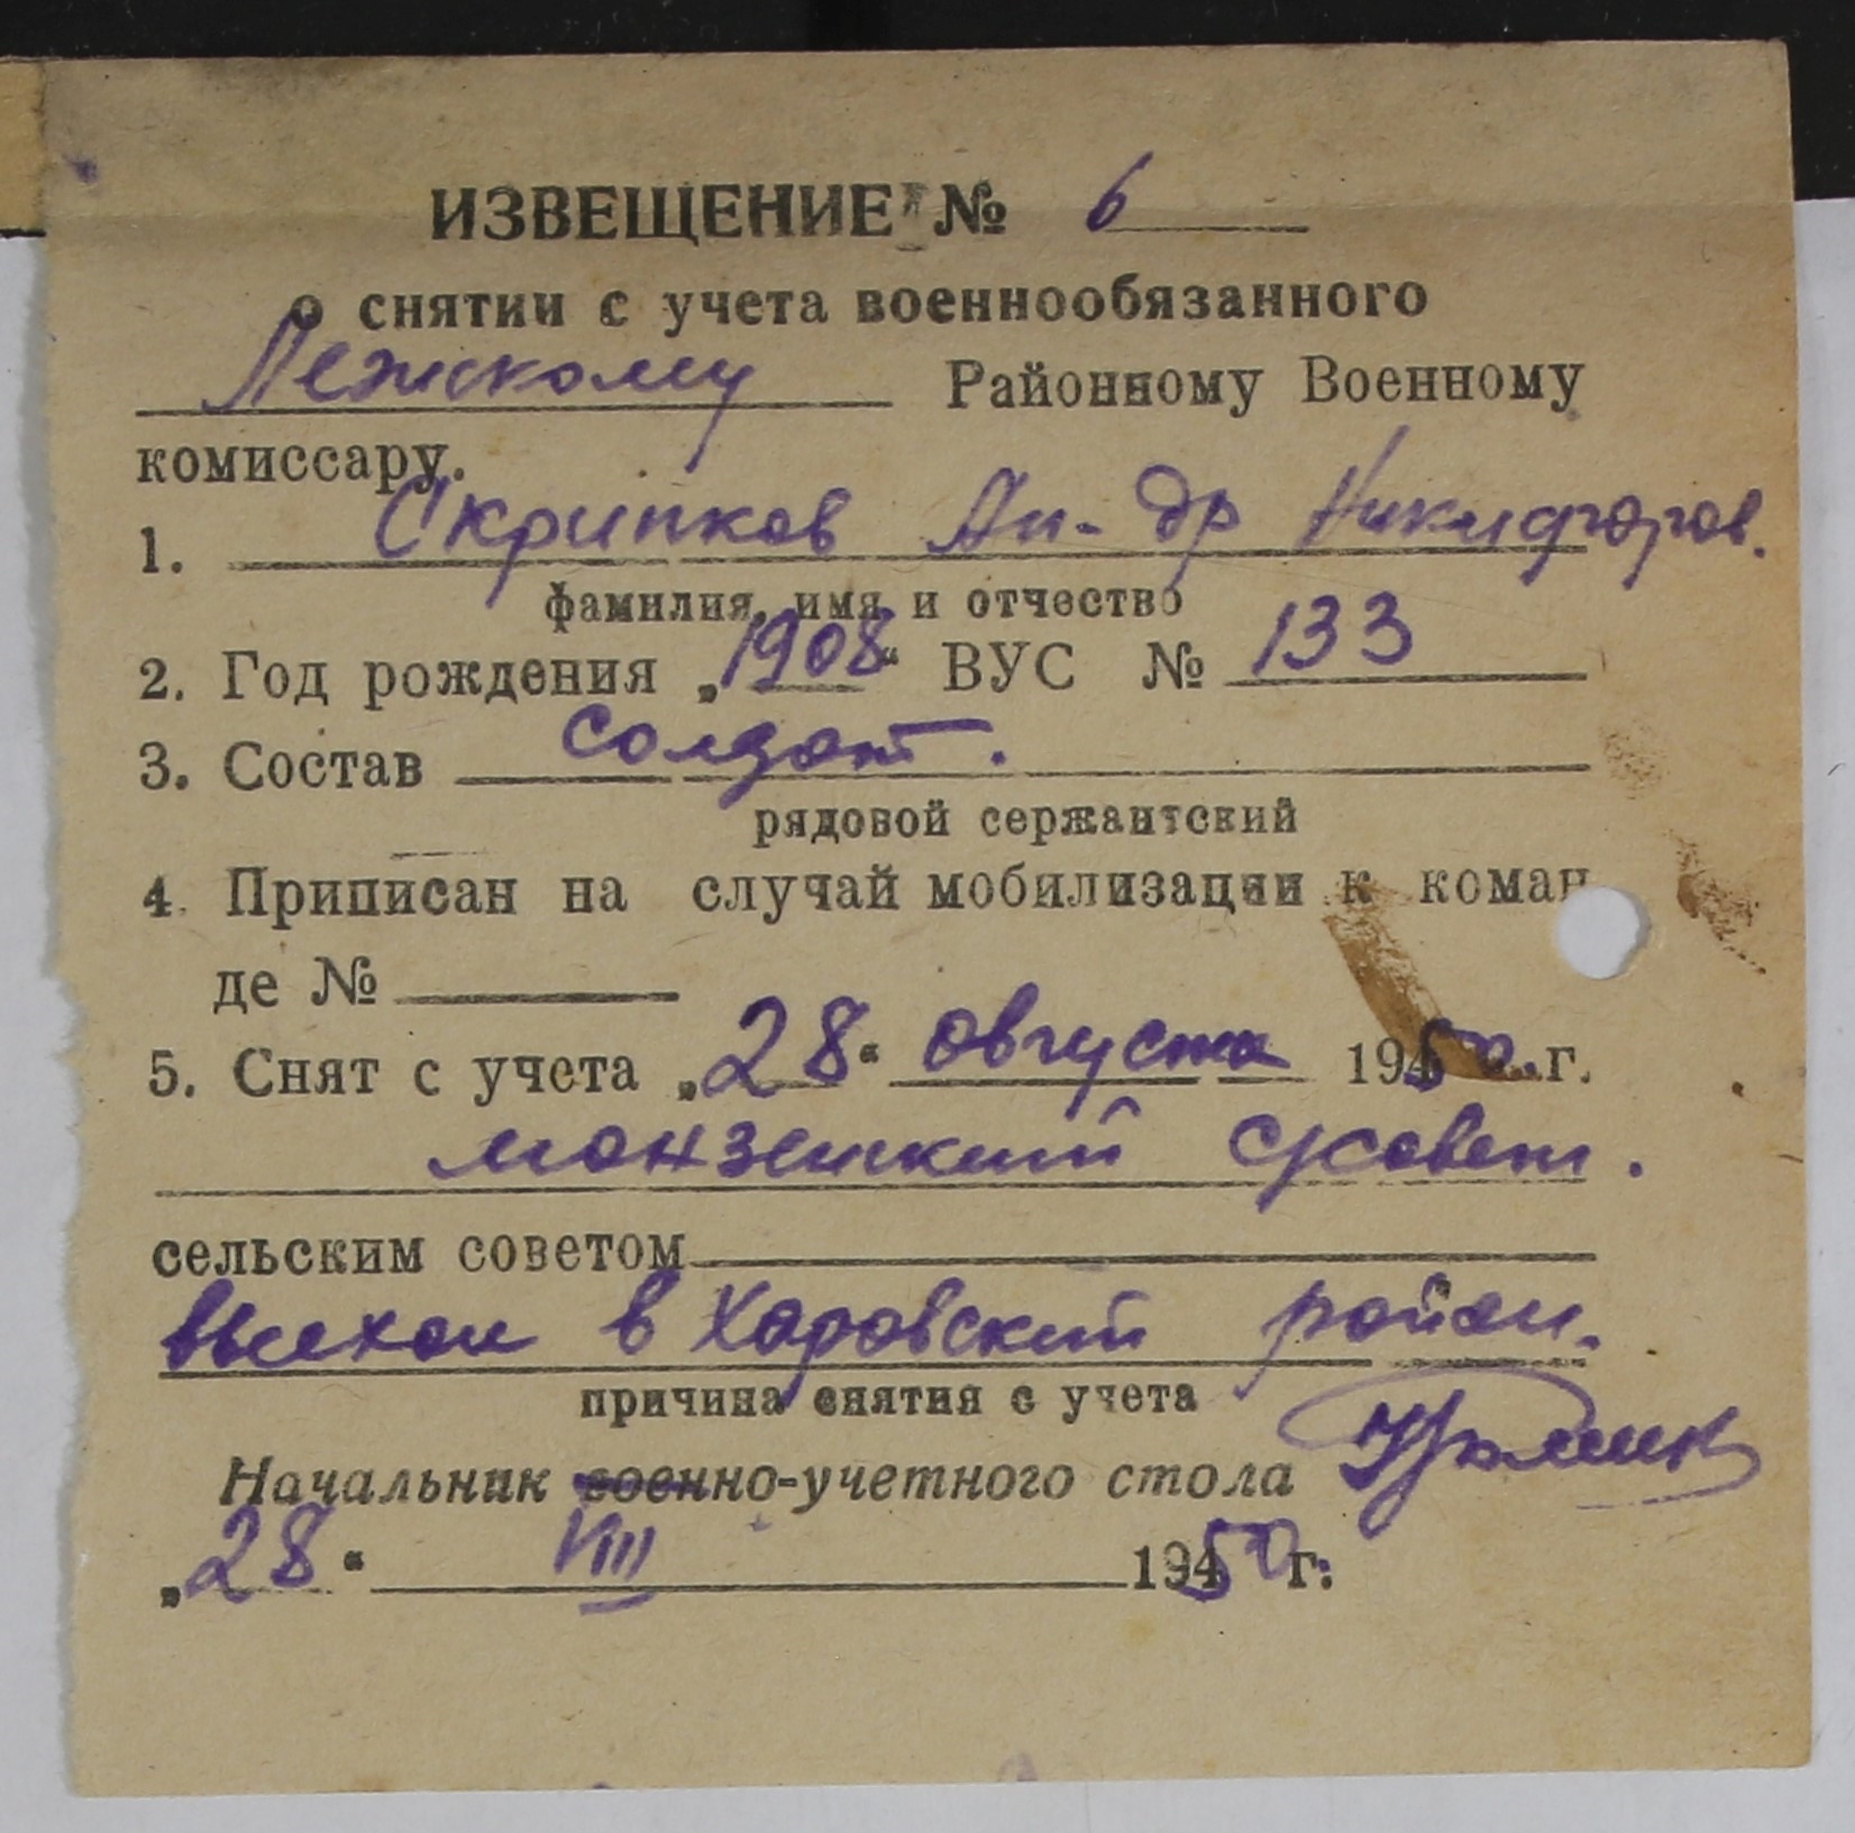 ИЗВЕЩЕНИЕ № 6
о снятии с учета военнообязанного
Лежскому Районному Военному
комиссару.
1. Скрипков Ан-др Никифоров.
фамилия, имя и отчество
2. Год рождения „1908“ ВУС № 133
3. Состав солдат.
рядовой сержантский
4. Приписан на случай мобилизации к коман
де №
5. Снят с учета „28“ августа 1950 г.
монзенский с/совет.
сельским советом
выехал в Харовский район.
причина снятия с учета
Начальник военно-учетного стола
„28“ VIII 1950 г.